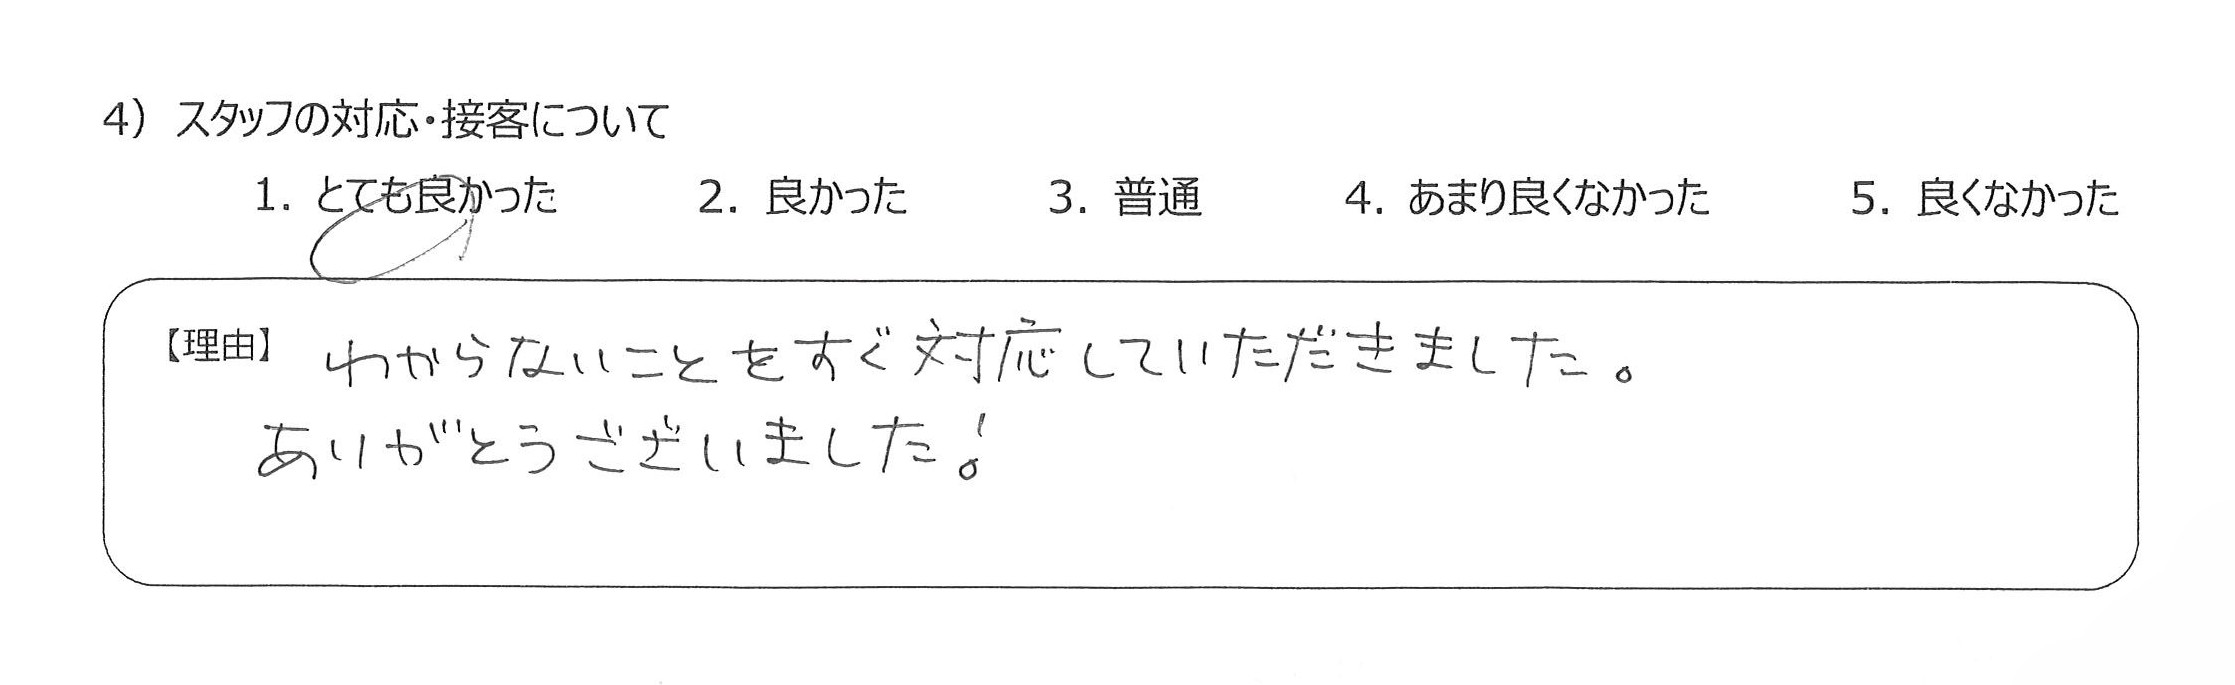 4) スタッフの対応・接客について
1. とても良かった 2. 良かった 3. 普通 4. あまり良くなかった 5. 良くなかった
【理由】 わからないことをすぐ対応していただきました。
ありがとうございました!